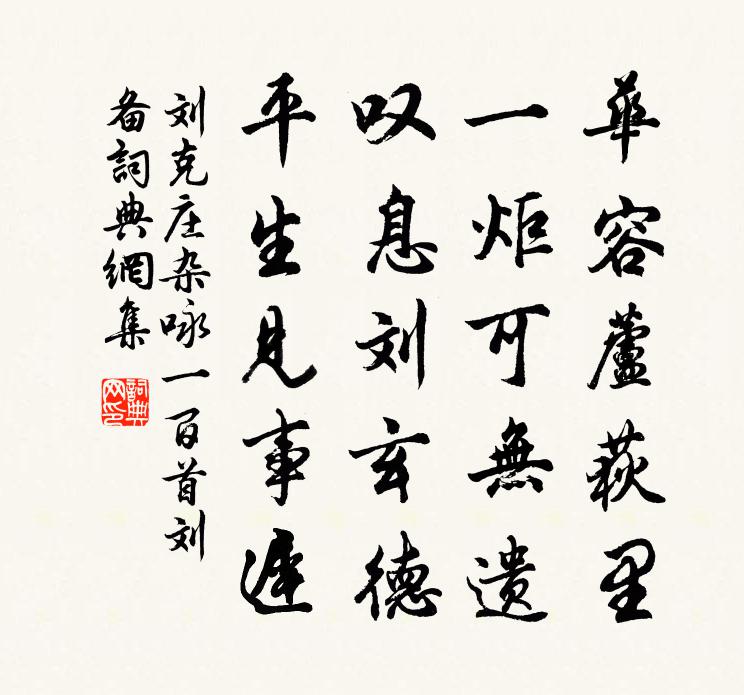 華容蘆荻里
一炬可無遗
叹息刘玄德
平生見事遲
刘克庄杂咏一百首刘
备詞典網集
詞典网印